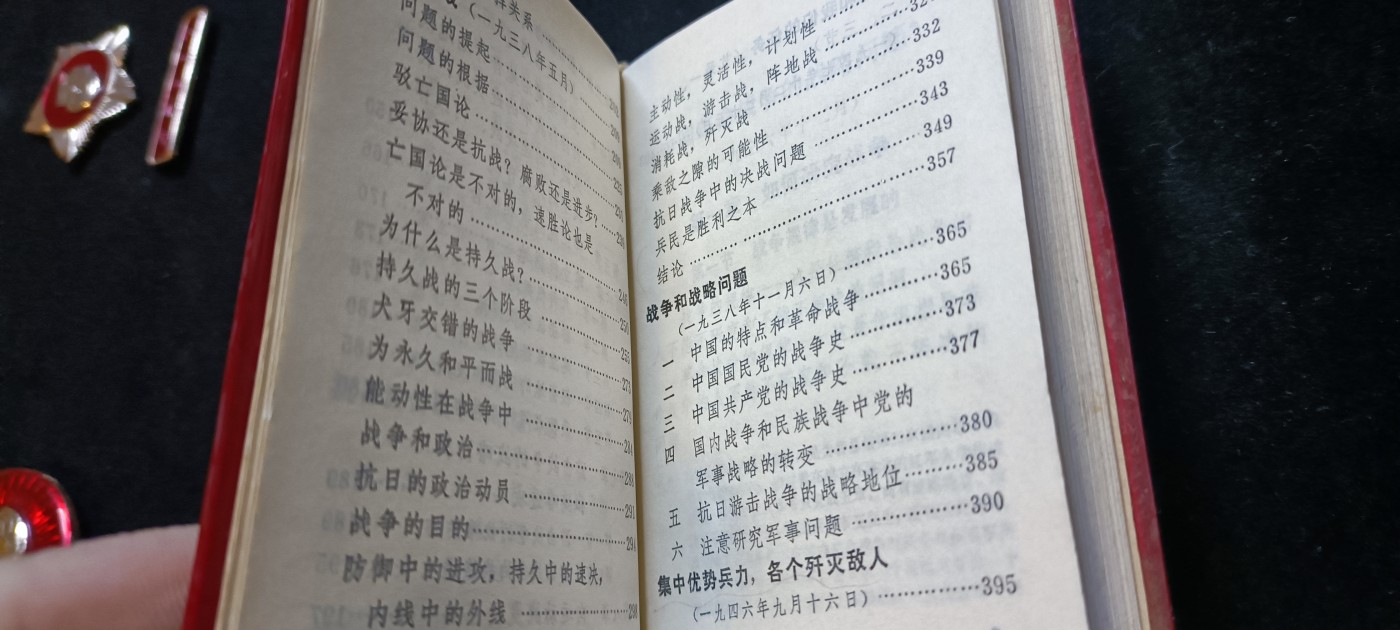 (一九三八年五月)
问题的提起
问题的根据
驳亡国论
妥协还是抗战？腐败还是进步？
亡国论是不对的，速胜论也是
不对的
为什么是持久战？
持久战的三个阶段
犬牙交错的战争
为永久和平而战
能动性在战争中
战争和政治
抗日的政治动员
战争的目的
防御中的进攻，持久中的速决，
内线中的外线
主动性，灵活性，计划性
运动战，游击战，阵地战
消耗战，歼灭战 …… 332
乘敌之隙的可能性 …… 339
抗日战争中的决战问题 …… 343
兵民是胜利之本 …… 349
结论 …… 357
战争和战略问题
(一九三八年十一月六日) …… 365
一 中国的特点和革命战争 …… 365
二 中国国民党的战争史 …… 373
三 中国共产党的战争史 …… 377
四 国内战争和民族战争中党的
军事战略的转变 …… 380
五 抗日游击战争的战略地位 …… 385
六 注意研究军事问题 …… 390
集中优势兵力，各个歼灭敌人
(一九四六年九月十六日) …… 395